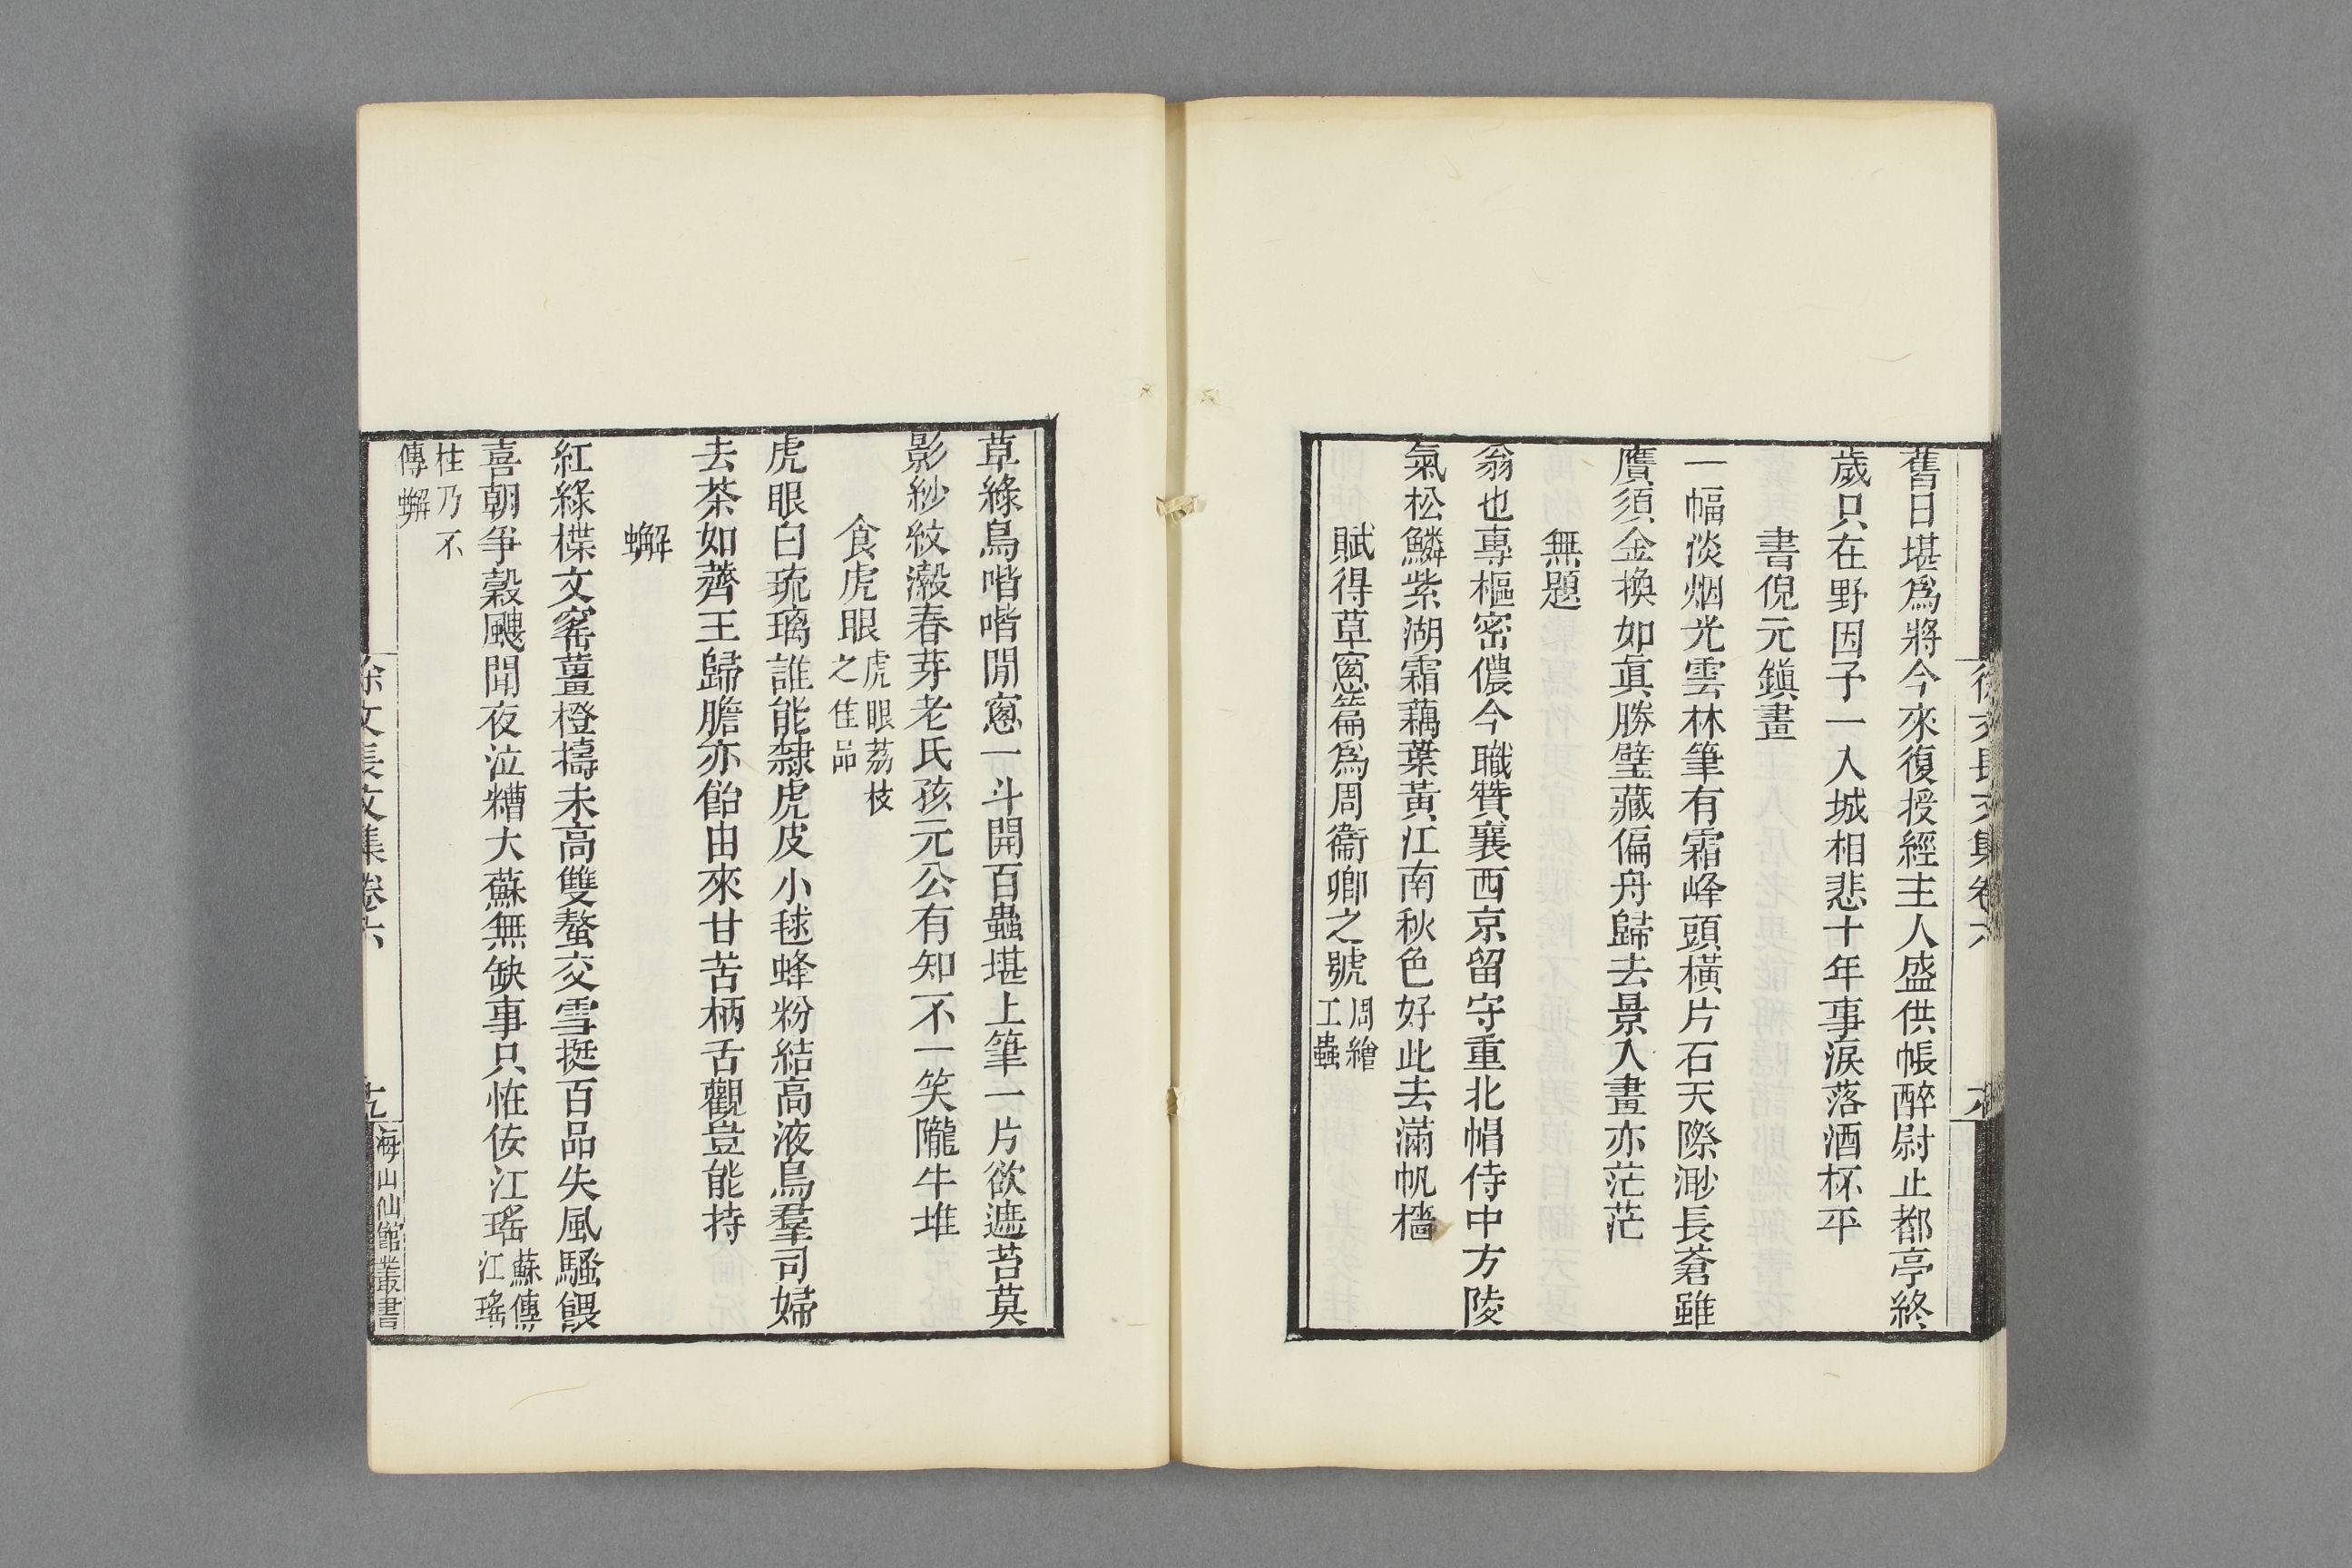 徐文長文集卷六
舊日堪爲將今來復授經主人盛供帳醉尉止都亭終
歲只在野因子一入城相悲十年事淚落酒杯平
書倪元鎭畫
一幅淡烟光雲林筆有霜峰頭橫片石天際渺長蒼雖
贗須金換如眞勝璧藏偏舟歸去景人畫亦茫茫
無題
翁也專樞密儂今職贊襄西京留守重北帽侍中方陵
氣松鱗紫湖霜藕葉黃江南秋色好此去滿帆檣
賦得草窻篇爲周衞卿之號周繪工蟲
草綠鳥喈喈閒窻一斗開百蟲堪上筆一片欲遮苔莫
影紗紋瀫春芽老氏孩元公有知不一笑隴牛堆
食虎眼虎眼荔枝之佳品
虎眼白琉璃誰能隸虎皮小毬蜂粉結高液鳥羣司婦
去茶如薺王歸膽亦飴由來甘苦柄舌觀豈能持
蠏
紅綠楪文窰薑橙擣未高雙螯交雪挺百品失風騷餵
喜朝爭穀颸聞夜泣糟大蘇無缺事只恠佞江瑤蘇傳江瑤
柱乃不傳蠏
徐文長文集卷六
海山仙館叢書